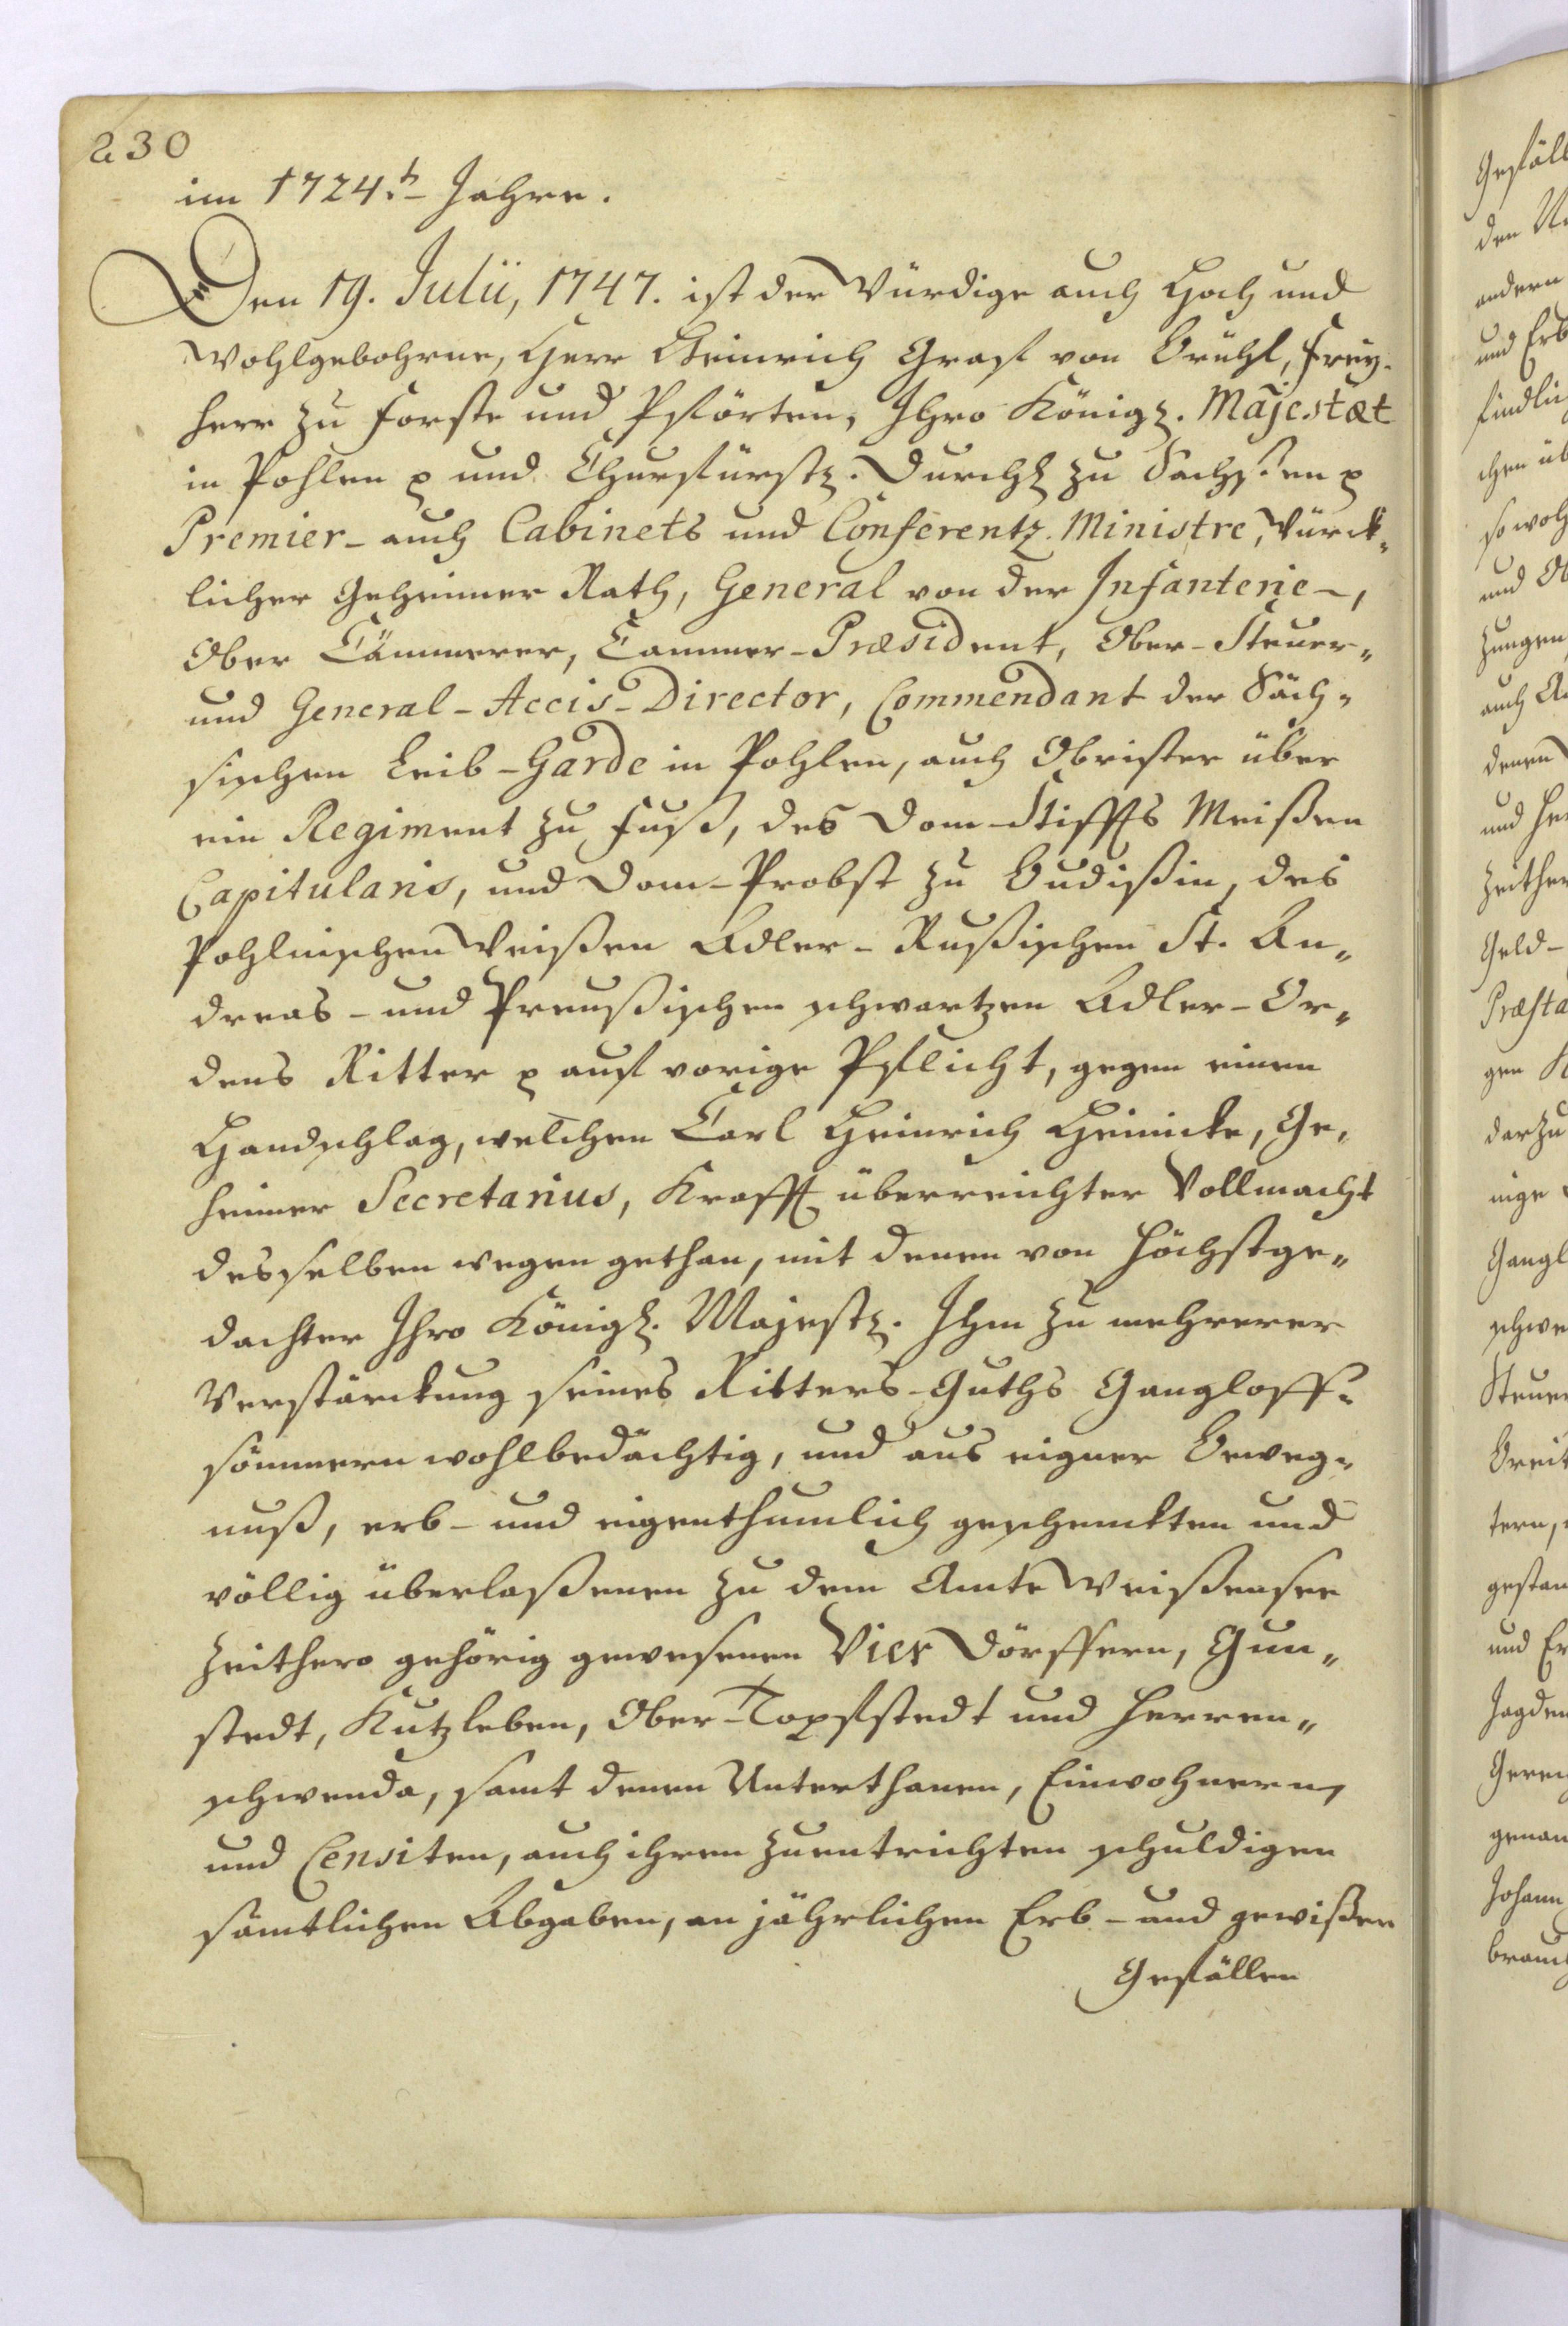 230
im 1724.t- Jahre.
Den 19. Julii, 1747. ist der Würdige auch Hoch und
Wohlgebohrne, Herr Heinrich Graf von Brühl, Frey-
herr zu Forste und Pförten, Ihro Königl. Majestæt
in Pohlen p und Churfürstl. Durchl zu Sachssen p
Premier- auch Cabinets und Conferentz. Ministre, Würck-
licher Geheimer Rath, General von der Infanterie-,
Ober Cämmerer, Cammer-Præsident, Ober-Steuer-
und General-Accis-Director, Commendant der Säch-
sischen Leib-Garde in Pohlen, auch Obrister über
ein Regiment zu Fuß, des Dom-Stiffts Meißen
Capitularis, und Dom-Probst zu Budißin, des
Pohlnischen Weißen Adler- Rußischen St. An-
dreas- und Preußischen schwartzen Adler-Or-
dens Ritter p auf vorige Pflicht, gegen einen
Handschlag, welchen Carl Heinrich Heinicke, Ge-
heimer Secretarius, Krafft überreichter Vollmacht
desselben wegen gethan, mit denen von Höchstge-
dachter Ihro Königl. Majestl. Ihm zu mehrerer
Verstärckung seines Ritters-Guths Gangloff-
sömmern wohlbedächtig, und aus eigner Beweg-
nuß, erb- und eigenthumlich geschenckten und
völlig überlaßenen zu dem Amte Weißensee
zeithero gehörig gewesenen Vier Dörffern, Gun-
stedt, Kutzleben, Ober-Topfstedt und Herren-
schwenda, samt denen Unterthanen, Einwohnern,
und Censiten, auch ihren zuentrichten schuldigen
sämtlichen Abgaben, an jährlichen Erb- und gewißen
Gefällen
Gefäll
den
andern
und Erb
findli
chen üb
sowoh
und Ob
zungen
auch
denen
und
zeither
Geld-
Præsta
gen
darzu
nige
Gangl
schwe
Steuer
Breit
tern,
gestan
und
Jagden
Gerei
genan
Johann
brauch